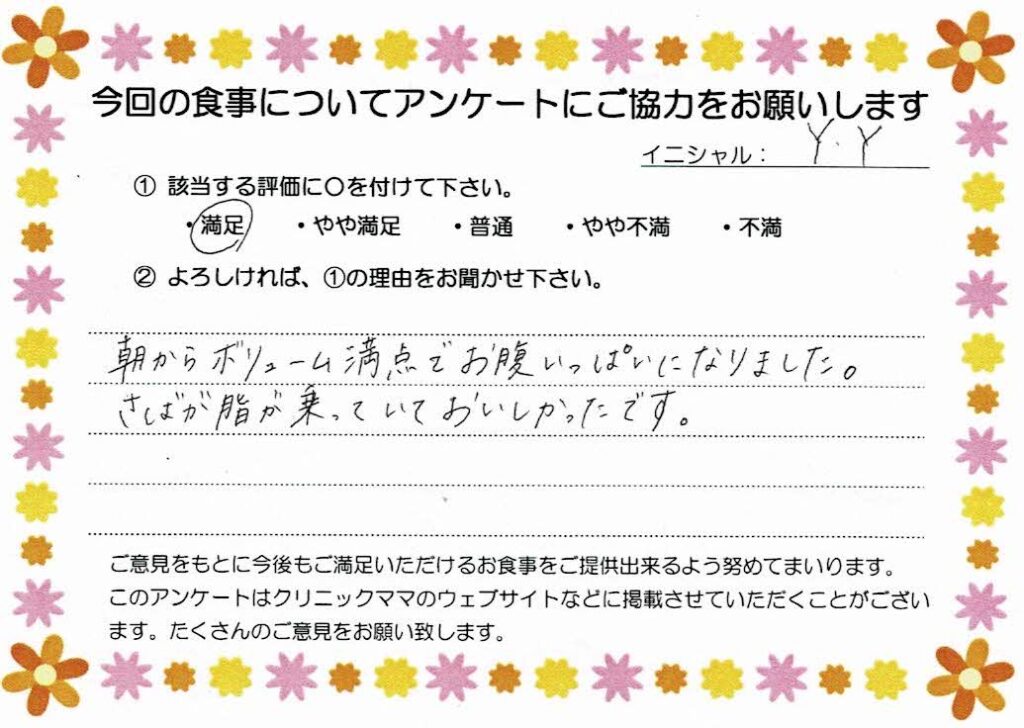 今回の食事についてアンケートにご協力をお願いします
イニシャル： Y.Y
① 該当する評価に〇を付けて下さい。
・満足 ・やや満足 ・普通 ・やや不満 ・不満
② よろしければ、①の理由をお聞かせ下さい。
朝からボリューム満点でお腹いっぱいになりました。
さばが脂が乗っていておいしかったです。
ご意見をもとに今後もご満足いただけるお食事をご提供出来るよう努めてまいります。
このアンケートはクリニックママのウェブサイトなどに掲載させていただくことがござい
ます。たくさんのご意見をお願い致します。